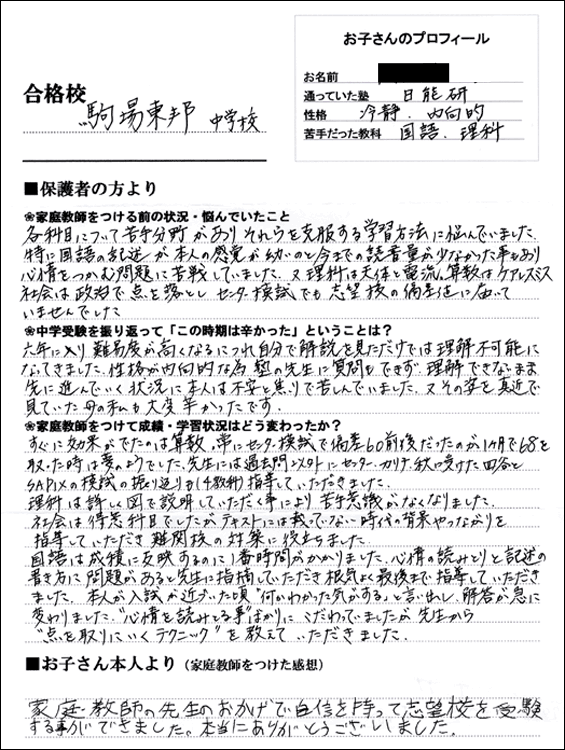 お子さんのプロフィール
お名前
通っていた塾 日能研
性格 冷静、内向的
苦手だった教科 国語、理科
合格校
駒場東邦 中学校
■保護者の方より
❀家庭教師をつける前の状況・悩んでいたこと
各科目について苦手分野があり それらを克服する学習方法に悩んでいました。
特に国語の記述が本人の感覚が幼いのと今までの読書量が少なかった事もあり
心情をつかむ問題に苦戦していました。又理科は天体と電流。算数はケアレスミス
社会は政治で点を落とし センター模試でも志望校の偏差値に届いて
いませんでした
❀中学受験を振り返って「この時期は辛かった」ということは?
六年に入り難易度が高くなるにつれ自分で解説を見ただけでは理解不可能に
なってきました。性格が内向的な為 塾の先生に質問もできず 理解できないまま
先に進んでいく状況に本人は不安と焦りで苦しんでいました。又その姿を真近で
見ていた母の私も大変辛かったです。
❀家庭教師をつけて成績・学習状況はどう変わったか?
すぐに効果がでたのは算数。常にセンター模試で偏差60前後だったのが1ヶ月で68を
取った時は夢のようでした。先生には過去問以外にセンター、カリテ、秋に受けた四谷と
SAPIXの模試の振り返りも(4教科)指導していただきました。
理科は詳しく図で説明していただく事により苦手意識がなくなりました。
社会は得意科目でしたがテキストには載っていない時代の背景やつながりを
指導していただき難関校の対策に役立ちました。
国語は成績に反映するのに1番時間がかかりました。心情の読みとりと記述の
書き方に問題があると先生に指摘していただき根気よく最後まで指導していただき
ました。本人が入試が近づいた頃"何かわかった気がする"と言い出し、解答が急に
変わりました。"心情を読みとる事ばかりに こだわっていましたが先生から
"点を取りにいくテクニック"を教えて いただきました。
■お子さん本人より(家庭教師をつけた感想)
家庭教師の先生のおかげで自信を持って志望校を受験
する事ができました。本当にありがとうございました。